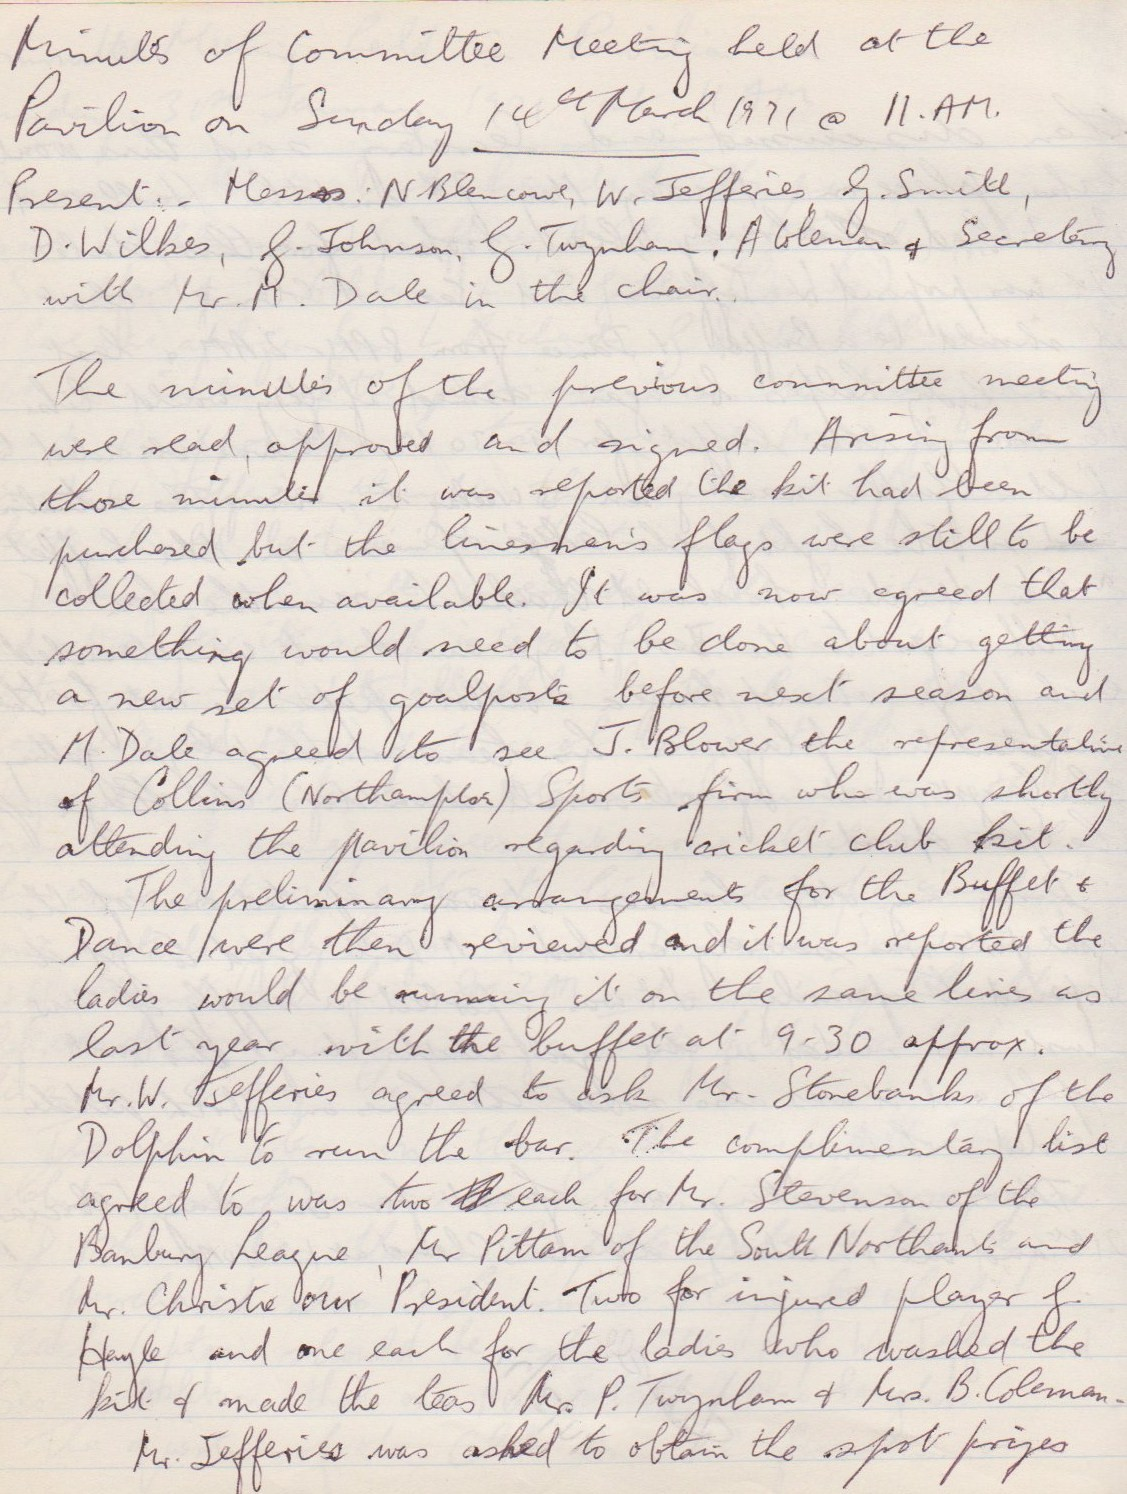 Minutes of Committee Meeting held at the
Pavilion on Sunday 14th March 1971 @ 11.AM.
Present:- Messrs: N Blencowe, W. Jefferies, G. Smith,
D. Wilkes, G. Johnson, G. Twynham, A Coleman & Secretary
with Mr. M. Dale in the chair.
The minutes of the previous committee meeting
were read, approved and signed. Arising from
those minutes it was reported the kit had been
purchased but the linesmen's flags were still to be
collected when available. It was now agreed that
something would need to be done about getting
a new set of goalposts before next season and
M. Dale agreed to see J. Blower the representative
of Collins (Northampton) Sports firm who was shortly
attending the pavilion regarding cricket club kit.
The preliminary arrangements for the Buffet &
Dance were then reviewed and it was reported the
ladies would be running it on the same lines as
last year with the buffet at 9-30 approx.
Mr. W. Jefferies agreed to ask Mr. Stonebanks of the
Dolphin to run the bar. The complimentary list
agreed to was two each for Mr. Stevenson of the
Banbury League, Mr Pittam of the South Northants and
Mr. Christie our President. Two for injured player G.
Hayle and one each for the ladies who washed the
kit & made the teas Mrs. P. Twynham & Mrs. B. Coleman.
Mr. Jefferies was asked to obtain the spot prizes